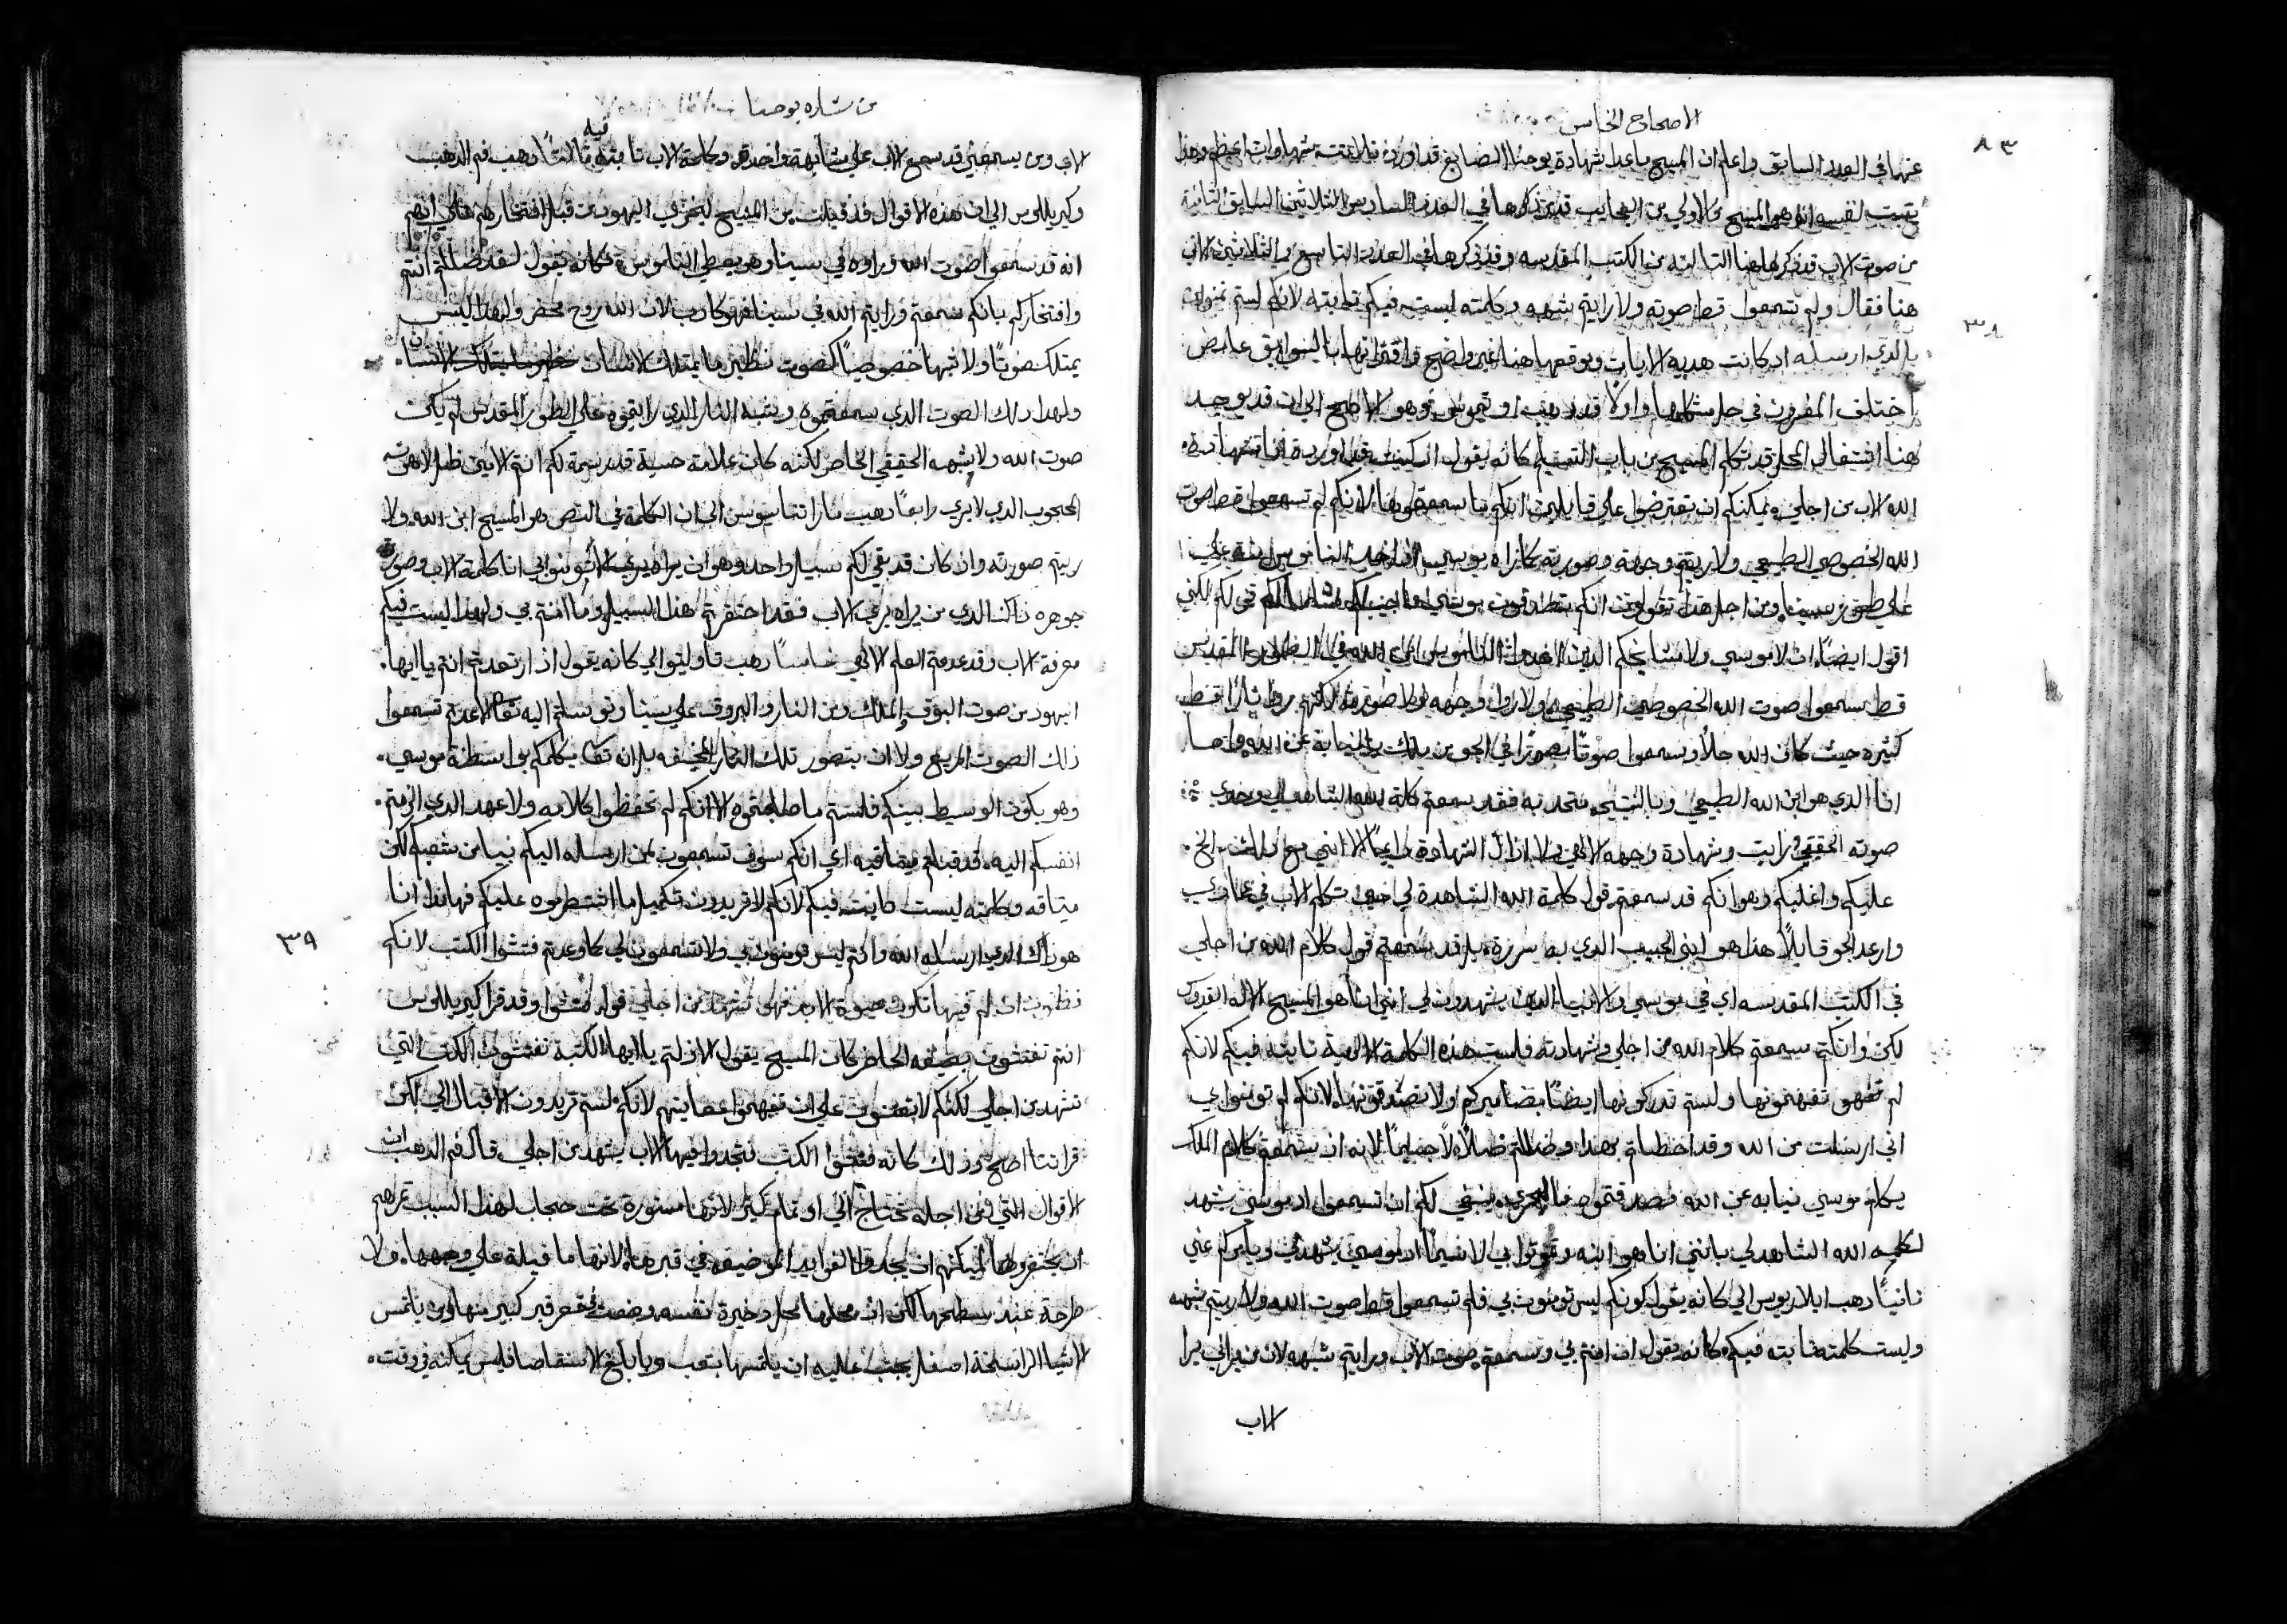 الاصحاح الخامس
٨٣
عنها في العدد السابق واعلم ان المسيح ماعدا شهادة يوحنا الصابغ قد اورد ثلاثة شهادات اعظم وهذا
تثبت لنفسه انه هو المسيح فالاولي من العجايب قد ذكرها في العدد السادس الثلاثين السابق الثانية
من صوت الاب قد ذكرها هنا الثالثة من الكتب المقدسه وقد ذكرها في العدد التاسع والثلاثين الاتي
٣٨
هنا فقال ولم تسمعوا قط صوته ولا رايتم شبهه وكلمته ليست فيكم ثابته لانكم لستم تومنون
بالذي ارسله اد كانت هديه الايات وموقعها هنا غير واضح واقترانها بالسوابق غامض
اختلف المفسرون في حل مشكلها واولا قد ذهب اوتيموس وهو الاصح الي ان قد يوجد
هنا اقتفال المحل قد تكلم المسيح من باب التسليم كانه يقول ان كنت قد اوردة لنا شهادة
الله الاب من اجلي يمكنكم ان تعترضوا علي قايلين انكم ما سمعتموها لانكم لم تسمعوا قط صوت
الله الخصوصي الطبيعي ولا ريتم وجهه وصورته كما راه موسي اذ اخذ الناموس منه علي
علي طور سينا ومن اجل هذا تقولون انكم
اقول ايضا ان لا موسي ولا مشايخكم الدين اخدوا الناموس من الله في الطور المقدس
قط سمعوا صوت الله الخصوصي الطبيعي ولا راوا وجهه ولا صورته لاكنهم راوا نارا فقط
كثيره حيث كان الله حالا وسمعوا صوتا مصورا في الجو من ملاك بالنيابة عن الله واما
انا الدي هو ابن الله الطبيعي وبالنتيجه متحد به فقد سمعتم كلمة الله الشاهد لي وحدي
صوته الحقيقي رايت وشهادة وجهه الالهي ولا ازال اشهاده دايما الا انني مع ذلك الح
عليكم واغلبكم وهو انكم قد سمعتم قول كلمة الله الشاهدة لي حين تكلم الاب في عمادي
وارعد الجو قايلا هذا هو ابني الحبيب الدي به سررة بل قد سمعتم قول كلام الله من اجلي
في الكتب المقدسه اي في موسي والانبيا الدين يشهدون لي انني انا هو المسيح الاله القدوس
لكن وانكم سمعتم كلام الله من اجلي وشهادته فليست هذه الكلمة الالهية ثابته فيكم لانكم
لم تفهمونها ولستم تدركونها ايضا بضمايركم ولا تصدقونها لانكم لم تومنوا بي
اني ارسلت من الله وقد اخطاتم بهذا وضللتم ضلالا جسيما لانه ان سمعتم كلام الملاك
يكلم موسي نيابه عن الله فصدقتموه فبالحري ينبغي لكم ان تسمعوا اد موسي يشهد
لكلمه الله الشاهد لي بانني انا هو ابنه وتومنوا بي لاسيما اد موسي يشهد لي ويامركم عني
ثانيا ذهب ايلاريوس الي كانه يقول كونكم ليس تومنون بي فلم تسمعوا قط صوت الله ولا ريتم شبهه
وليست كلمته ثابته فيكم كانه يقول ان امنتم بي وسمعتم صوت الاب ورايتم شبهه لان من يراني يرا
الاب
من بشارة يوحنا
فيه
الاب ومن يسمعني قد سمع الاب علي مشابهة واحدة وكلمة الاب ثابتة ثالثا دهب فم الدهب
وكيريللوس الي ان هذه الاقوال قد قيلت من المسيح ليخزي اليهود من قبل افتخارهم هالي ابهم
انه قد سمعوا صوت الله وراوه في سينا وهو يعطي الناموس فكانه يقول لقد ضللتم انتم
وافتخاركم بانكم سمعتم ورايتم الله في سينا فهو كادب لان الله روح محض ولهذا ليس
يمتلك صوتا ولا شبها خصوصيا كصوت نظير ما يمتلك الانسان
ولهدا دلك الصوت الدي سمعتموه وشبه النار الدي رايتموه علي الطور المقدس لم يكن
صوت الله ولا شبهه الحقيقي الخاص لكنه كان علامة حسية قد رسمة لكم انتم الامين ظل اللاهوت
المحجوب الدي لا يري رابعا دهب ماراتناسيوس الي ان الكلمة في النص هو المسيح ابن الله ولا
ريتم صورته وان كان قد بقي لكم سبيل واحد وهو ان يراه يري الاب فومنوا بي انا كلمة الاب وصورة
جوهره داك الدي من يراه يري الاب فقد احتقرتم هذا السبيل وما امنتم بي ولهدا ليست فيكم
معرفة الاب وقد عدمتم العلم الالهي خامسا دهب تاوليتوالي كانه يقول اد ارتعدتم انتم يا ايها
اليهود من صوت البوق والملاك ومن النار والبروق علي سينا وتوسلتم اليه تعالي لا عدتم تسمعوا
ذلك الصوت المريع ولا ان بتصور تلك النار المخيفه بل انه تعالي يكلمكم بواسطة موسي
وهو يكون الوسيط بينكم فلستم ما طلبتموه الا انكم لم تحفظوا كلامه ولا عهد الدي الزمتم
انفسكم اليه قد قبلتم ميثاقيه اي انكم سوف تسمعون من ارساله اليكم نبيا من شعبكم لكن
ميثاقه وكلمته ليست ثابته فيكم لانكم لا تريدون تكميل ما اشترطوه عليكم فهاندا انا
٣٩
هو داك الدي ارسله الله وانتم ليس تومنون بي ولا تسمعون لي كما وعدتم فتشوا الكتب لانكم
تظنون ان لكم فيها تكون حيوة الابد فهي تشهد من اجلي قوله فتشوا وقد قرا كيريللوس
انتم تفتشون بصيغه الحاضر كان المسيح يقول لا زلتم يا ايها الكتبة تفتشون الكتب التي
تشهد من اجلي لكنكم لا تعتنون علي ان تفهموا معانيهم لانكم لستم تريدون الاقبال الي لكن
قراتنا اصح وذلك كانه فتشوا الكتب فتجدوا فيها الاب يشهد من اجلي قال فم الدهب ان
الاقوال التي من اجله تحتاج الي اهتمام كبير لانها مستورة تحت حجاب لهذا السبب تمرهم
ان يحتفروها ليمكنهم ان يجدوا الفوايد الموضيعه في قبرها لانها ما قيلة علي وجهها ولا
طرحة عند سطحها لكن ان محلها محل دخيرة نفيسه وضعت في قعر قبر كبير منها ومن يلتمس
الاشيا الراسخة اسفل يجب عليه ان يلتمسها بتعب وبابلغ الاستقصا فليس يمكنه في وقت